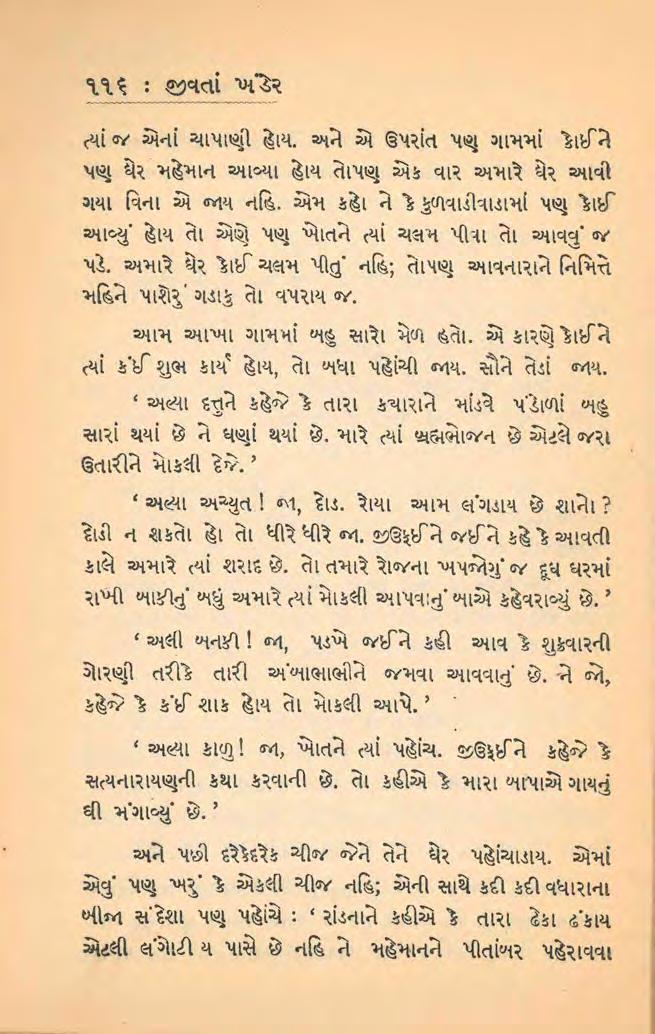 ૧૧૬ : જીવતાં ખંડેર
ત્યાં જ એનાં ચાપાણી હોય. અને એ ઉપરાંત પણ ગામમાં કોઈને
પણ ઘેર મહેમાન આવ્યા હોય તોપણ એક વાર અમારે ઘેર આવી
ગયા વિના એ જાય નહિ. એમ કહો ને કે કુળવાડીવાડામાં પણ કોઈ
આવ્યું હોય તો એણે પણ ખોતને ત્યાં ચલમ પીવા તો આવવું જ
પડે. અમારે ઘેર કોઈ ચલમ પીતું નહિ; તોપણ આવનારાને નિમિત્તે
મહિને પાશેરું ગડાકુ તો વપરાય જ.
આમ આખા ગામમાં બહુ સારો મેળ હતો. એ કારણે કોઈને
ત્યાં કંઈ શુભ કાર્ય હોય, તો બધા પહોંચી જાય. સૌને તેડાં જાય.
‘ અલ્યા દત્તુને કહેજે કે તારા કચારાને માંડવે પંડોળાં બહુ
સારાં થયાં છે ને ઘણાં થયાં છે. મારે ત્યાં બ્રહ્મભોજન છે એટલે જરા
ઉતારીને મોકલી દેજે.’
‘ અલ્યા અચ્યુત ! જા, દોડ. રોયા આમ લંગડાય છે શાનો ?
દોડી ન શકતો હો તો ધીરે ધીરે જા. જીઉકુઈને જઈને કહે કે આવતી
કાલે અમારે ત્યાં શરાદ છે. તો તમારે રોજના ખપજોગું જ દૂધ ઘરમાં
રાખી બાકીનું બધું અમારે ત્યાં મોકલી આપવાનું બાએ કહેવરાવ્યું છે.’
‘ અલી બનકી ! જા, પડખે જઈને કહી આવ કે શુક્રવારની
ગોરણી તરીકે તારી અંબાભાભીને જમવા આવવાનું છે. ને જો,
કહેજે કે કંઈ શાક હોય તો મોકલી આપે.’
‘ અલ્યા કાળુ ! જા, ખોતને ત્યાં પહોંચ. જીઉકુઈને કહેજે કે
સત્યનારાયણની કથા કરવાની છે. તો કહીએ કે મારા બાપાએ ગાયનું
ઘી મંગાવ્યું છે.’
અને પછી દરેકેદરેક ચીજ જેને તેને ઘેર પહોંચાડાય. એમાં
એવું પણ ખરું કે એકલી ચીજ નહિ; એની સાથે કદી કદી વધારાના
બીજા સંદેશા પણ પહોંચે : ‘ રાંડનાને કહીએ કે તારા ઢેકા ઢંકાય
એટલી લંગોટી ય પાસે છે નહિ ને મહેમાનને પીતાંબર પહેરાવવા